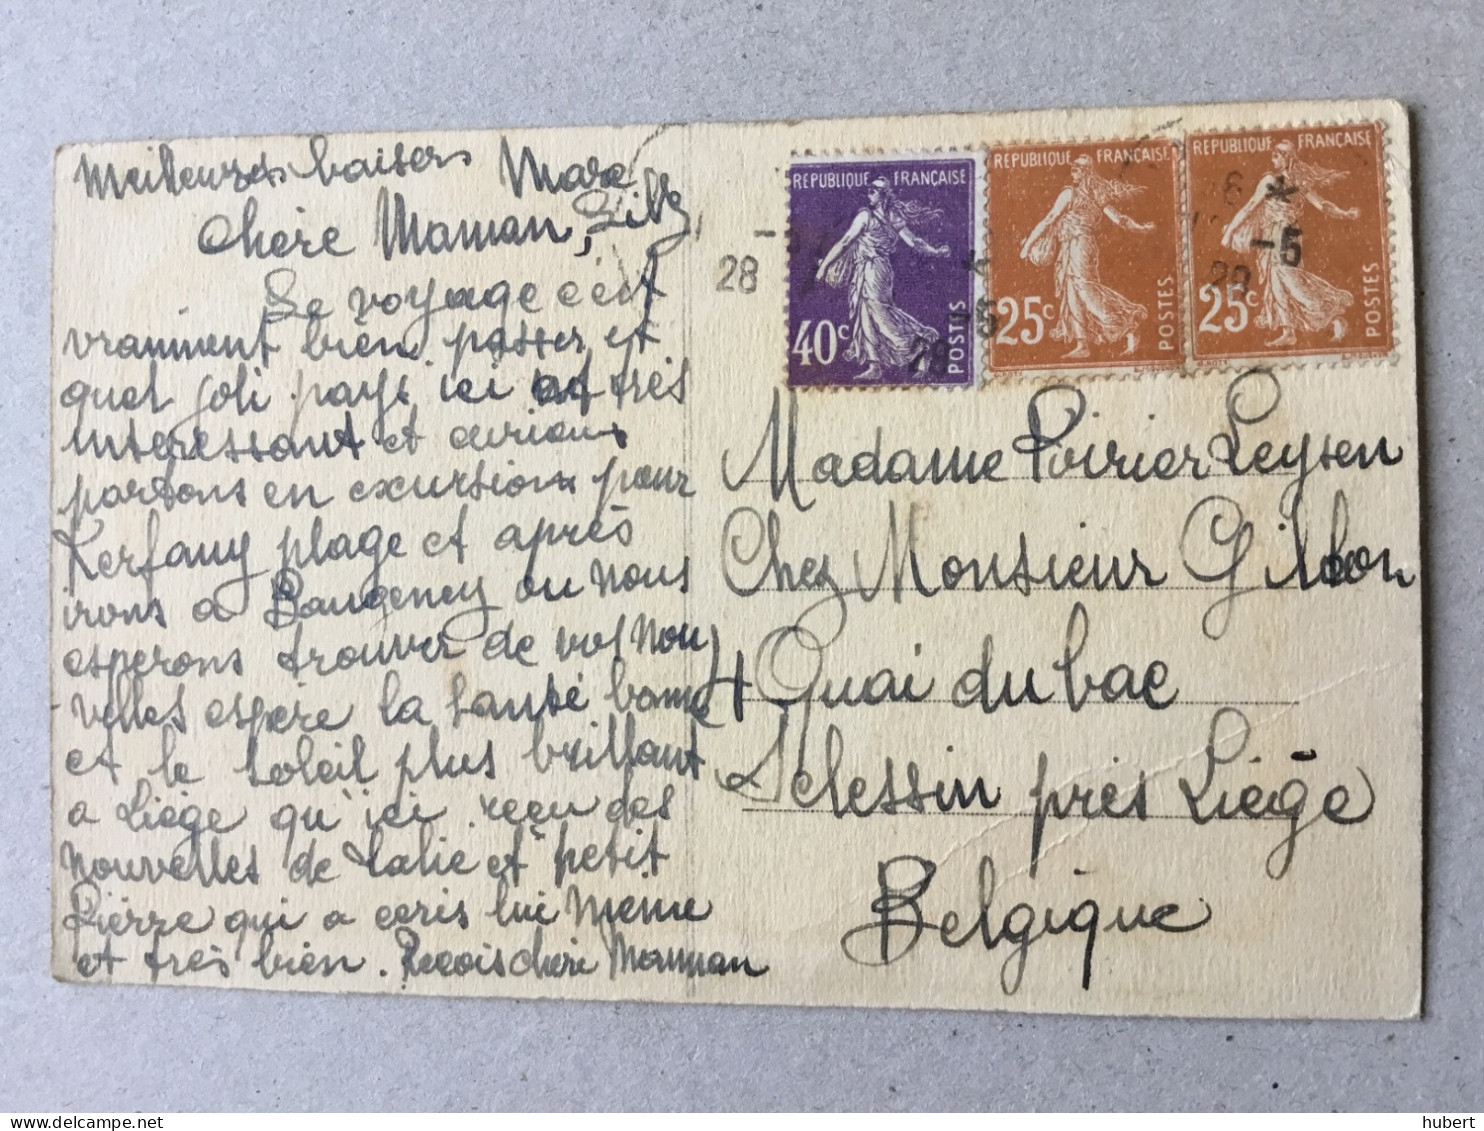 Meilleures baisers Marc
Chère Maman,
Le voyage c'est
vraiment bien passer et
quel joli pays ici est très
interessant et
partons en excursions pour
Kerfany plage et après
irons a Baugency ou nous
esperons trouver de vos nou
velles espère la santé bonne
et le soleil plus brillant
a Liége qu'ici reçu des
nouvelles de et petit
Pierre qui a ecris lui même
et très bien. Recois chère Maman
REPUBLIQUE FRANÇAISE
40c
POSTES
REPUBLIQUE FRANÇAISE
25c
POSTES
REPUBLIQUE FRANÇAISE
25c
POSTES
28
-5
28
-5
Madame Poirier Leysen
Chez Monsieur
4 Quai du bac
Sclessin près Liége
Belgique
hubert